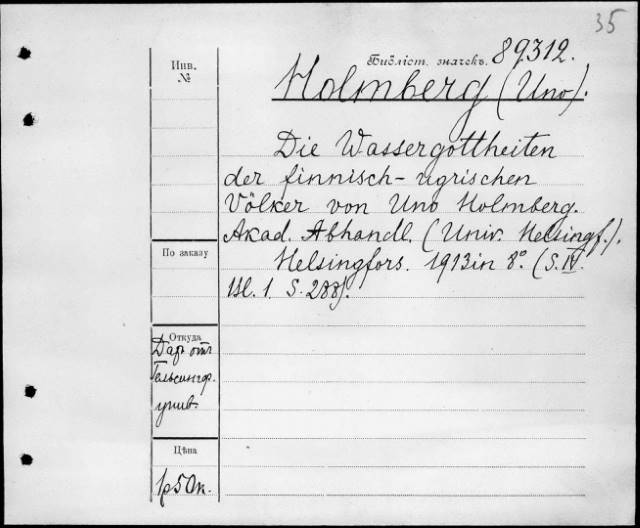 35
Библіот. значекъ. 89312.
Инв.
№
Holmberg (Uno).
Die Wassergottheiten
der finnisch-ugrischen
Völker von Uno Holmberg.
Akad. Abhandl. (Univ. Helsingf.).
По заказу
Helsingfors. 1913 in 8°. (S. IV.
Bl. 1. S. 288).
Откуда
Даръ отъ
Гельсингф.
унив.
Цѣна
1р50к.